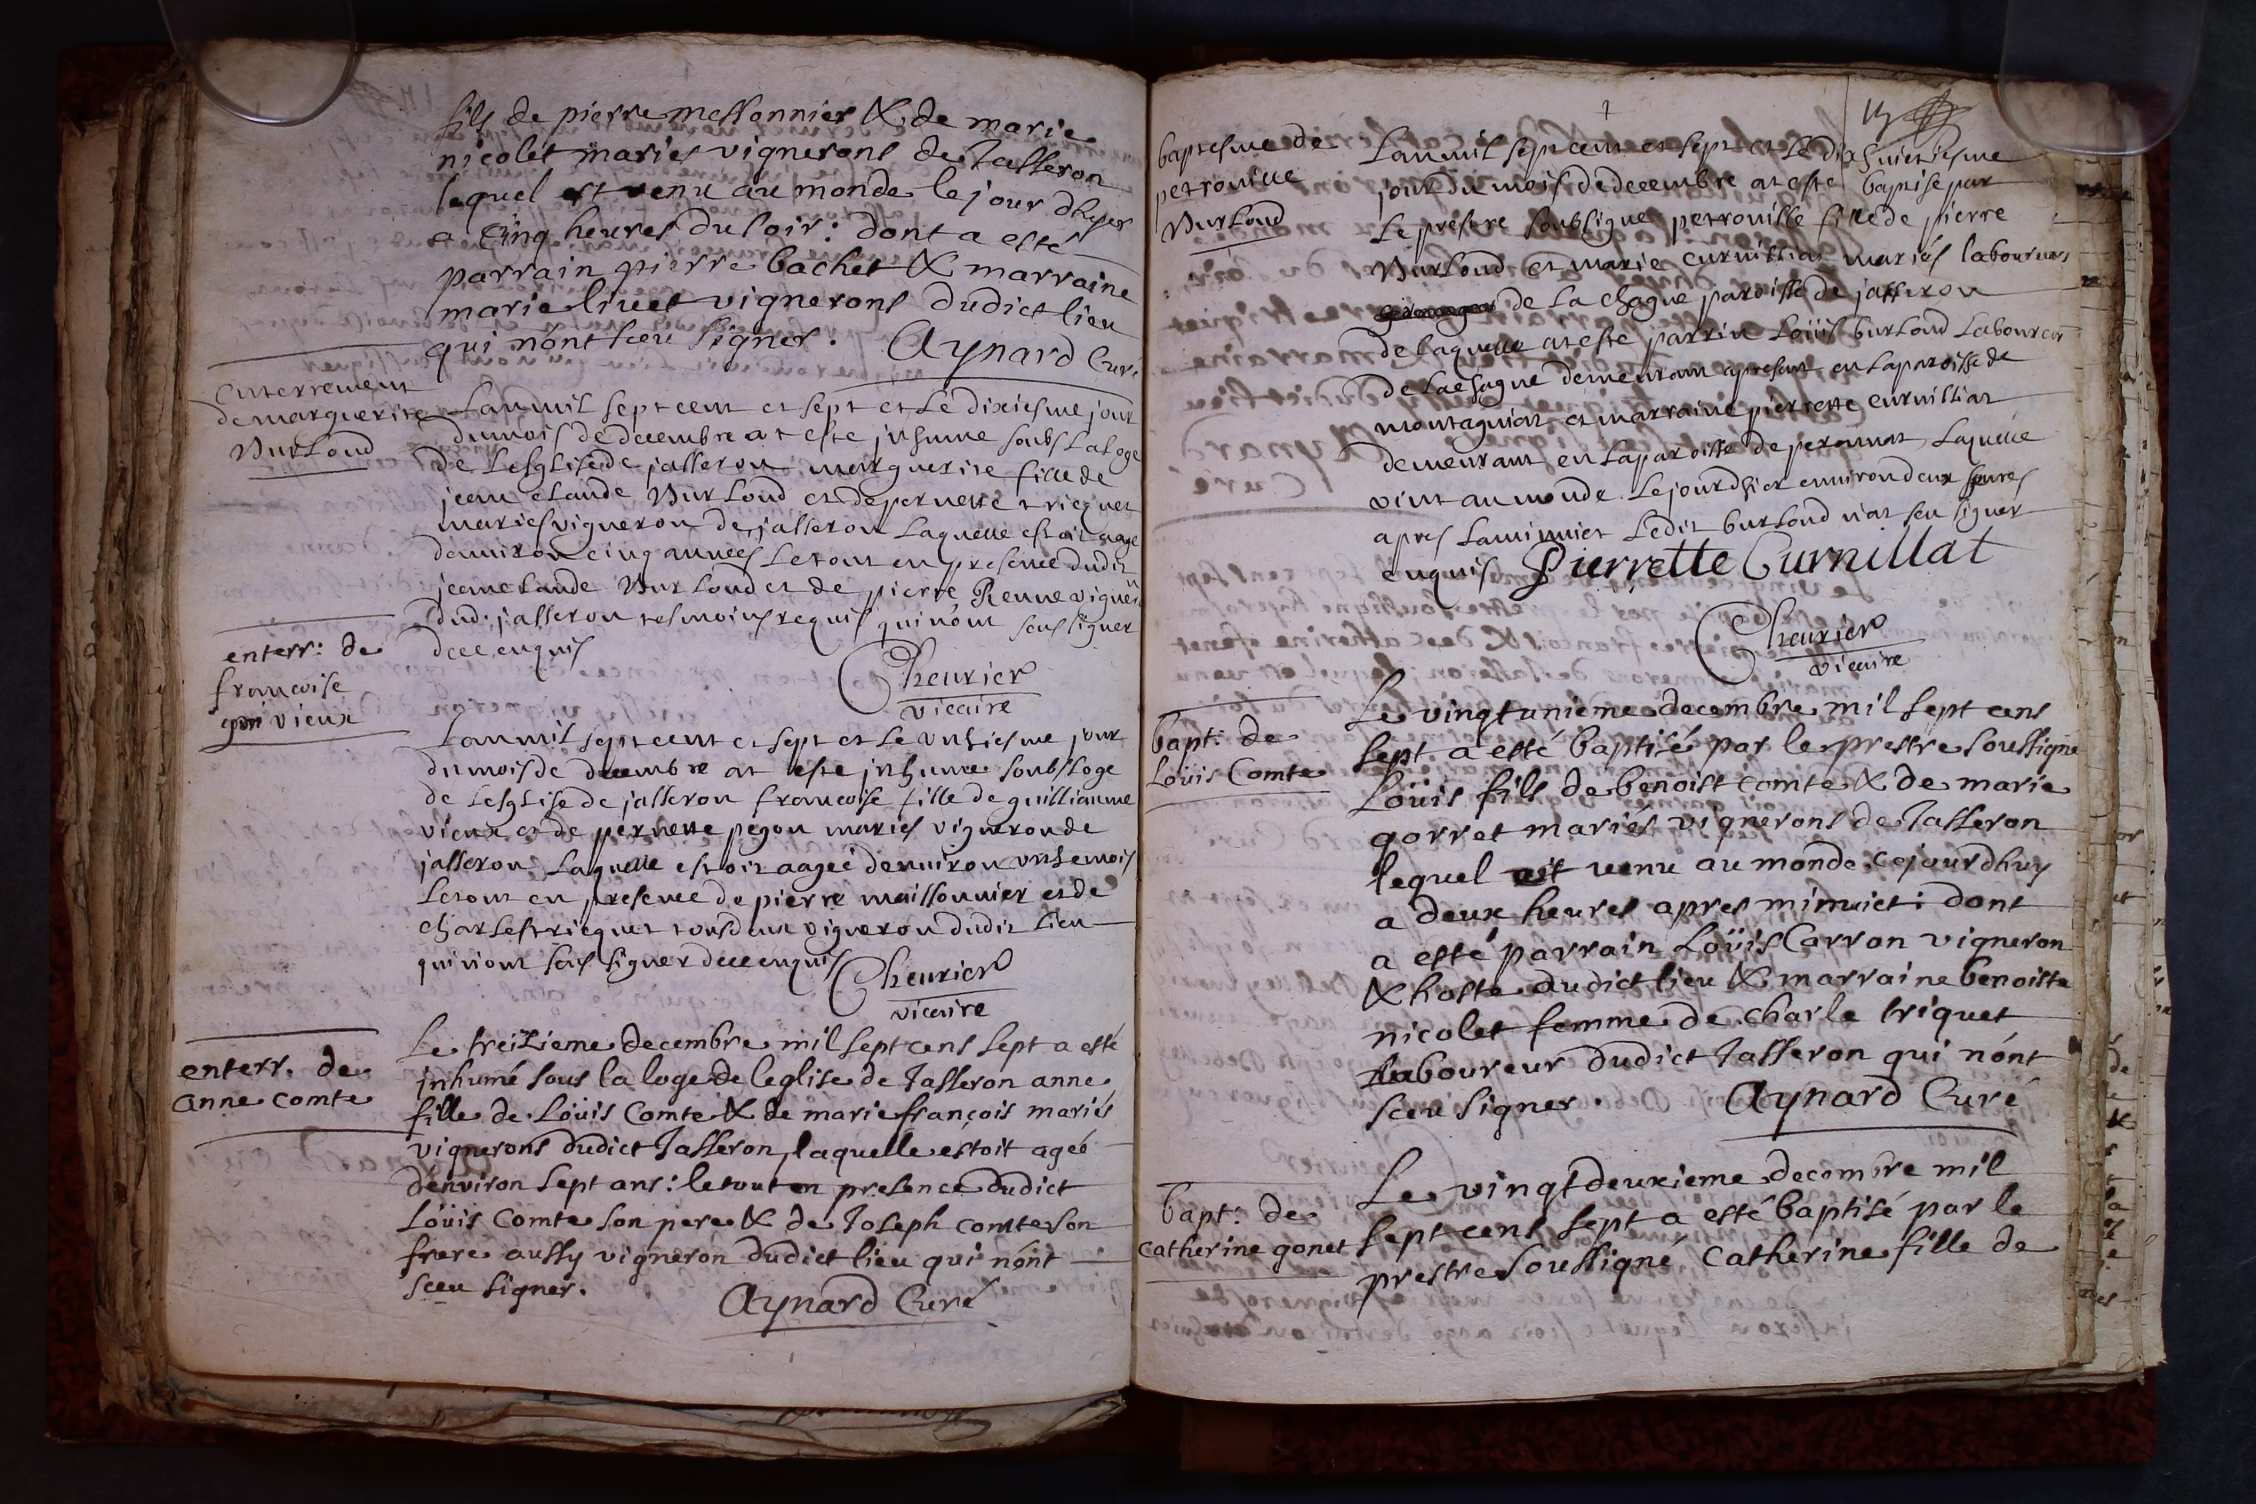 fils de pierre messonnier & de marie
nicolet mariés vignerons de Jasseron
lequel est venu au monde le jour dhyer
a cinq heures du soir : dont a esté
parrain pierre bachet & marraine
marie livet vignerons dudict lieu
qui n'ont sceu signer. Aynard Curé
enterrement
de marguerite
Burloud
Lan mil sept cent et sept et Le dixiesme jour
du mois de decembre at esté jnhume soubs La Loge
de Lesglise de jasseron marguerite fille de
jean claude Burloud et de pernette tricquet
mariés vigneron de jasseron Laquelle estoit aagé
denviron cinq années Le tout en presence dudit
jean claude Burloud et de pierre Renne vigneron
dud. jasseron tesmoins requis qui nont seus signer
de ce enquis
Cheurier
vicaire
enterr: de
francoise
vieux
Lan mil sept cent et sept et Le unziesme jour
du mois de decembre at este jnhumé soubs Loge
de Lesglise de jasseron francoise fille de guilliaume
vieux et de pernette pegon mariés vigneron de
jasseron Laquelle estoit aageé denviron unze mois
Le tout en presence de pierre maissonnier et de
charles tricquet tous deux vigneron dudit Lieu
qui nont seus signer de ce enquis
Cheurier
vicaire
enterr. de
anne comte
Le treizieme decembre mil sept cens sept a esté
jnhumé sous la loge de leglise de Jasseron anne
fille de Loüis Comte & de marie françois mariés
vignerons dudict Jasseron, laquelle estoit ageé
d'environ sept ans : le tout en presence dudict
Loüis Comte son pere & de Joseph comte son
frere aussy vigneron dudict lieu qui n'ont
sceu signer.
Aynard Curé
baptesme de
petrouille
Burloud
Lan mil sept cent et sept et Le dix huictiesme
jour du mois de decembre at esté baptisé par
Le prestre soubsigné petrouille fille de pierre
Burloud et marie curnilliat mariés laboureurs
de La chagne paroisse de jasseron
de Laquelle at esté parrin Loüis burloud Laboureur
de La chagne demeurant apresent en La paroisse de
montagniat et marraine pierrette curnilliat
demeurant en La paroisse de peronnat Laquelle
vint au monde Le jour dhier environ deux heures
apres La minuict Ledit burloud n'at seu signer
enquis Pierrette Curnillat
Cheurier
vicaire
bapt: de
Loüis Comte
Le vingtunieme decembre mil sept cens
sept a esté baptisé par le prestre soussigné
Loüis fils de benoist comte & de marie
gorret mariés vignerons de Jasseron
lequel est venu au monde cejourdhuy
a deux heures apres minuict : dont
a esté parrain Loüis Carron vigneron
& hoste dudict lieu & marraine benoiste
nicolet femme de charle triquet
laboureur dudict Jasseron qui n'ont
sceu signer. Aynard Curé
bapt: de
catherine gonet
Le vingtdeuxieme decembre mil
sept cens sept a esté baptisé par le
prestre soussigné Catherine fille de